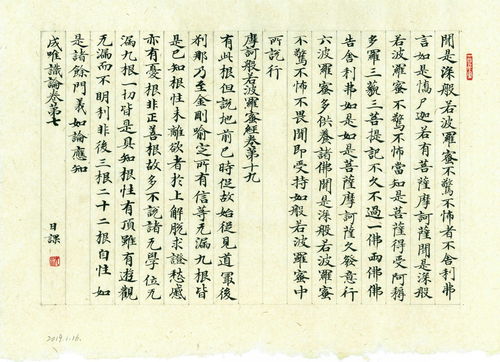 聞是深般若波羅蜜不驚不怖者不舍利弗
言如是憍尸迦若有菩薩摩訶薩聞是深般
若波羅蜜不驚不怖當知是菩薩得受阿耨
多羅三藐三菩提記不久不過一佛兩佛佛
告舍利弗如是如是菩薩摩訶薩久發意行
六波羅蜜多供養諸佛聞是深般若波羅蜜
不驚不怖不畏聞即受持如般若波羅蜜中
所說行
摩訶般若波羅蜜經卷第十九
有此根但說地前已時促故始從見道最後
剎那乃至金剛喻定所有信等无漏九根皆
是已知根性未離欲者於上解脫求證愁慼
亦有憂根非正善根故多不說諸无學位无
漏九根一切皆是具知根性有頂雖有遊觀
无漏而不明利非後三根二十二根自性如
是諸餘門義如論應知
成唯識論卷第七
日課
2019.1.16.